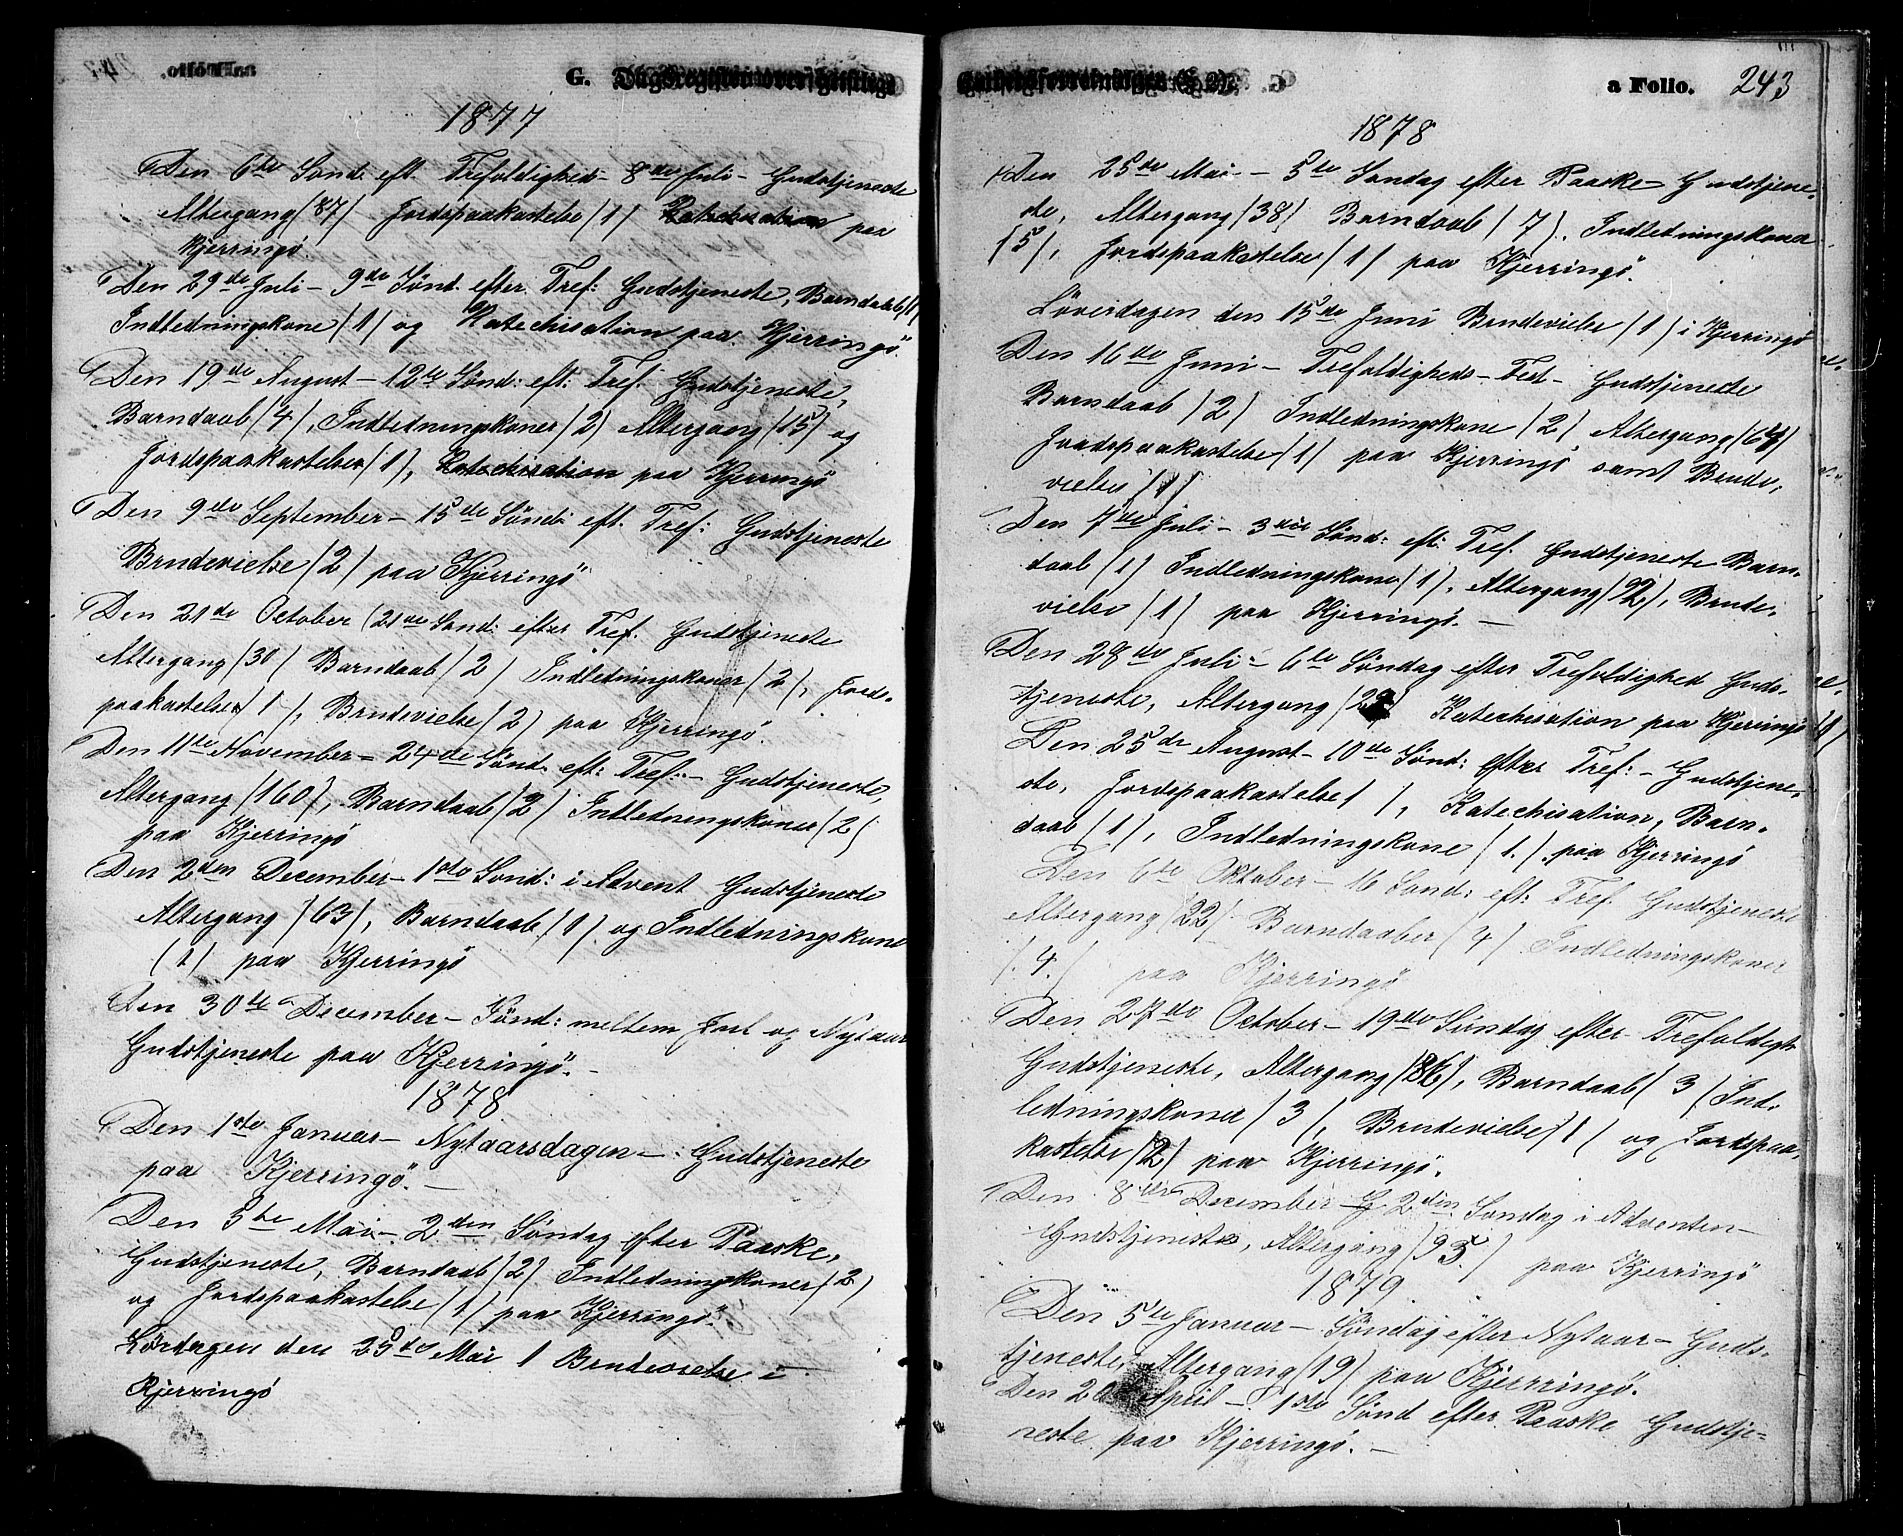 G. Dagsregister over geistlige
1877
Den 6te Sønd. eft. Trefoldighed – 8de Juli – Gudstjeneste
Altergang (87) Jordspaakastelse (1) Katechisation paa
Kjerringö.
Den 29de Juli – 9de Sønd. efter Tref: Gudstjeneste, Barndaab (1)
Indledningskone (1) og Katechisation paa Kjerringö.
Den 19de August – 12te Sønd: eft: Tref. Gudstjeneste,
Barndaab (4), Indledningskoner (2) Altergang (15) og
Jordspaakastelse (1), Katechisation paa Kjerringö
Den 9de September – 15de Sønd: eft. Tref: Gudstjeneste
Brudevielse (2) paa Kjerringö
Den 21de October (21de Sønd: efter Tref. Gudstjeneste
Altergang (30) Barndaab (2) Indledningskoner (2), Jords-
paakastelse (1), Brudevielse (2) paa Kjerringö.
Den 11te November – 24de Sønd. eft: Tref: – Gudstjeneste,
Altergang (160), Barndaab (2) Indledningskoner (2)
paa Kjerringö
Den 2den December – 1ste Sønd: i Advent Gudstjeneste
Altergang (63), Barndaab (1) og Indledningskone
(1) paa Kjerringö
Den 30te December – Sønd: mellem Jul og Nytaar
Gudstjeneste paa Kjerringö. –
1878
Den 1ste Januar – Nytaarsdagen – Gudstjeneste
paa Kjerringö. –
Den 5te Mai – 2den Søndag efter Paaske,
Gudstjeneste, Barndaab (2) Indledningskoner (2)
og Jordspaakastelse (1) paa Kjerringö.
Lørdagen den 25de Mai 1 Brudevielse i
Kjerringö
a Folio. 243
1878
Den 25de Mai – 5te Søndag efter Paaske – Gudstjene-
ste, Altergang (38) Barndaab (7), Indledningskone
(5), Jordspaakastelse (1) paa Kjerringö.
Löverdagen den 15de Juni Brudevielse (1) i Kjerringö
Den 16de Juni – Trefoldigheds – Fest – Gudstjeneste
Barndaab (2) Indledningskone (2) Altergang (64)
Jordspaakastelse (1) paa Kjerringö samt Brude-
vielse (1)
Den 7de Juli – 3die Sønd: eft: Tref. Gudstjeneste Barn-
daab (1) Indledningskone (1), Altergang (92), Brude-
vielse (1) paa Kjerringö. –
Den 28de Juli – 6te Søndag efter Trefoldighed Guds-
tjeneste, Altergang Katechisation paa Kjerringö
Den 25de August – 10de Sønd: Efter Tref: – Gudstjene-
ste, Jordspaakastelse ( ), Katechisation, Barn-
daab (1), Indledningskone (1.) paa Kjerringö
Den 6te Oktober – 16 Sønd: eft: Tref. Gudstjeneste
Altergang (22) Barndaaber (4) Indledningskoner
(.4.) paa Kjerringö
Den 27de October – 19de Søndag efter Trefoldigh
Gudstjeneste, Altergang (86), Barndaab (3) Ind-
ledningskoner (3), Brudevielse (1) og Jordspaa-
kastelse (2) paa Kjerringö.
Den 8de December – 2den Søndag i Adventen –
Gudstjeneste, Altergang (95.) paa Kjerringö
1879
Den 5te Januar – Søndag efter Nytaar – Guds-
tjeneste, Altergang (19) paa Kjerringö.
Den 20 April – 1ste Sønd efter Paaske Gudstje-
neste paa Kjerringö. –